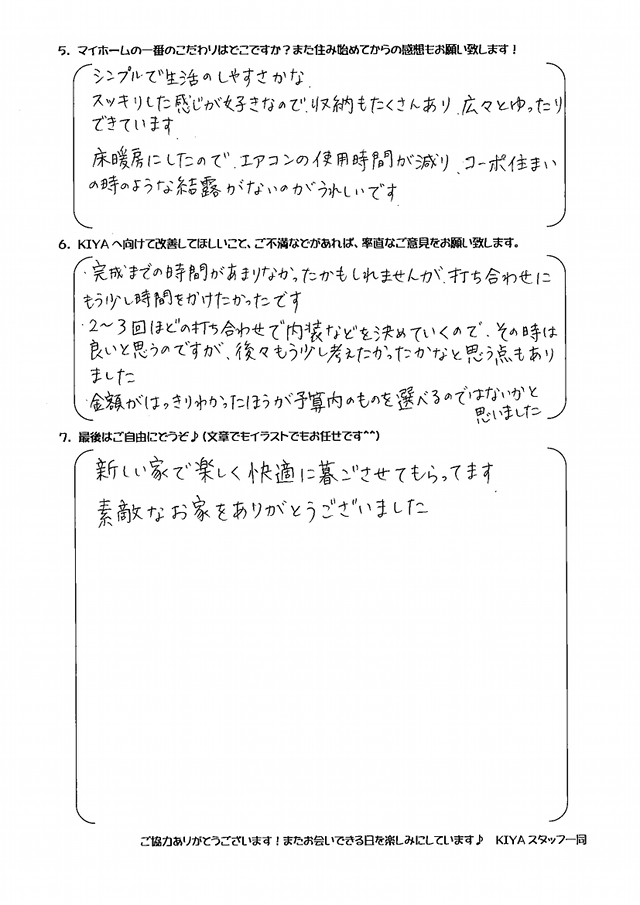 5. マイホームの一番のこだわりはどこですか？また住み始めてからの感想もお願い致します！
シンプルで生活のしやすさかな
スッキリした感じが好きなので、収納もたくさんあり、広々とゆったり
できています
床暖房にしたので、エアコンの使用時間が減り、コーポ住まい
の時のような結露がないのがうれしいです
6. KIYAへ向けて改善してほしいこと、ご不満などがあれば、率直なご意見をお願い致します。
・完成までの時間があまりなかったかもしれませんが、打ち合わせに
もう少し時間をかけたかったです
・2～3回ほどの打ち合わせで内装などを決めていくので、その時は
良いと思うのですが、後々もう少し考えたかったかなと思う点もあり
ました
・金額がはっきりわかったほうが予算内のものを選べるのではないかと
思いました
7. 最後はご自由にどうぞ♪(文章でもイラストでもお任せです^^)
新しい家で楽しく快適に暮ごさせてもらってます
素敵なお家をありがとうございました
ご協力ありがとうございます！またお会いできる日を楽しみにしています♪ KIYAスタッフ一同